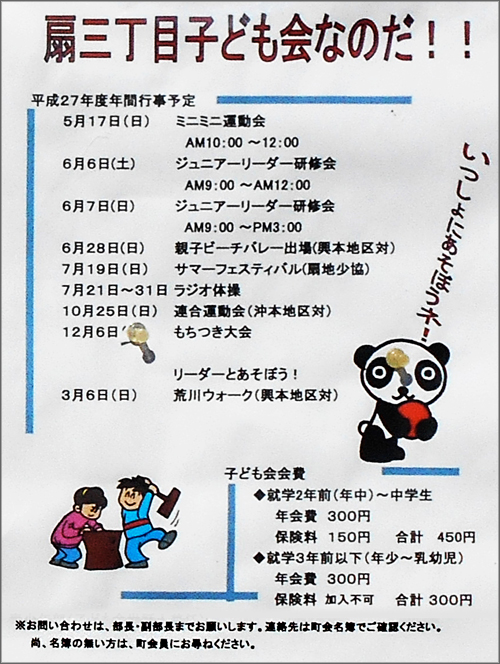 扇三丁目子ども会なのだ！！
平成27年度年間行事予定
5月17日(日) ミニミニ運動会
AM10:00 ～12:00
6月6日(土) ジュニアーリーダー研修会
AM9:00 ～AM12:00
6月7日(日) ジュニアーリーダー研修会
AM9:00 ～PM3:00
6月28日(日) 親子ビーチバレー出場(興本地区対)
7月19日(日) サマーフェスティバル(扇地少協)
7月21日～31日 ラジオ体操
10月25日(日) 連合運動会(沖本地区対)
12月6日( もちつき大会
リーダーとあそぼう！
3月6日(日) 荒川ウォーク(興本地区対)
いっしょにあそぼうネ！
子ども会会費
◆就学2年前(年中)～中学生
年会費 300円
保険料 150円 合計 450円
◆就学3年前以下(年少～乳幼児)
年会費 300円
保険料 加入不可 合計 300円
※お問い合わせは、部長・副部長までお願いします。連絡先は町会名簿でご確認ください。
尚、名簿の無い方は、町会員にお尋ねください。